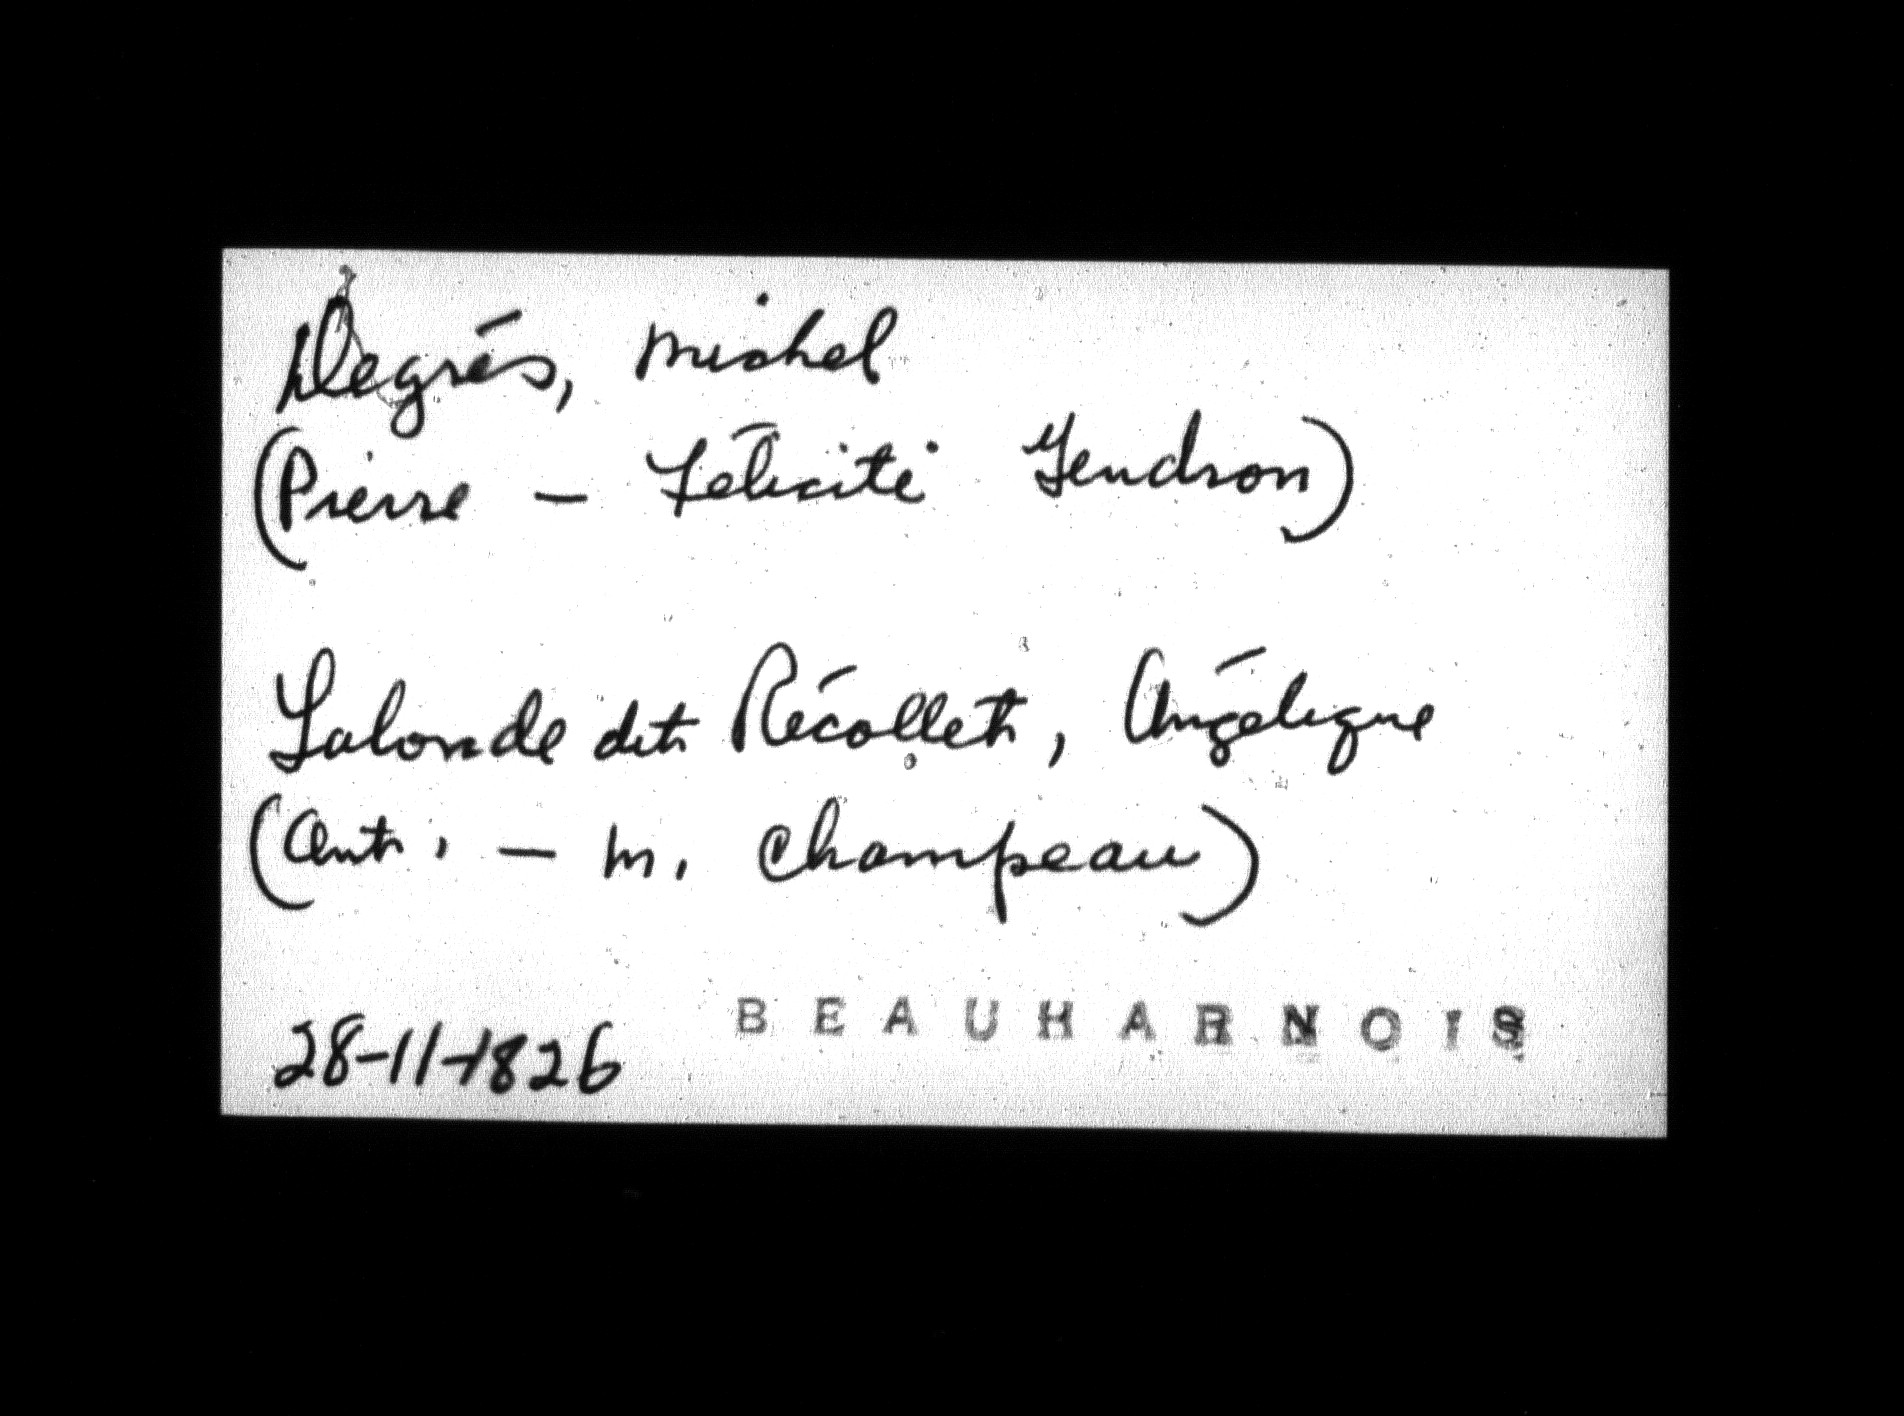 Degrés, Michel
(Pierre - Félicité Gendron)
Lalonde dit Récollet, Angélique
(Ant. - M. Champeau)
28-11-1826 BEAUHARNOIS